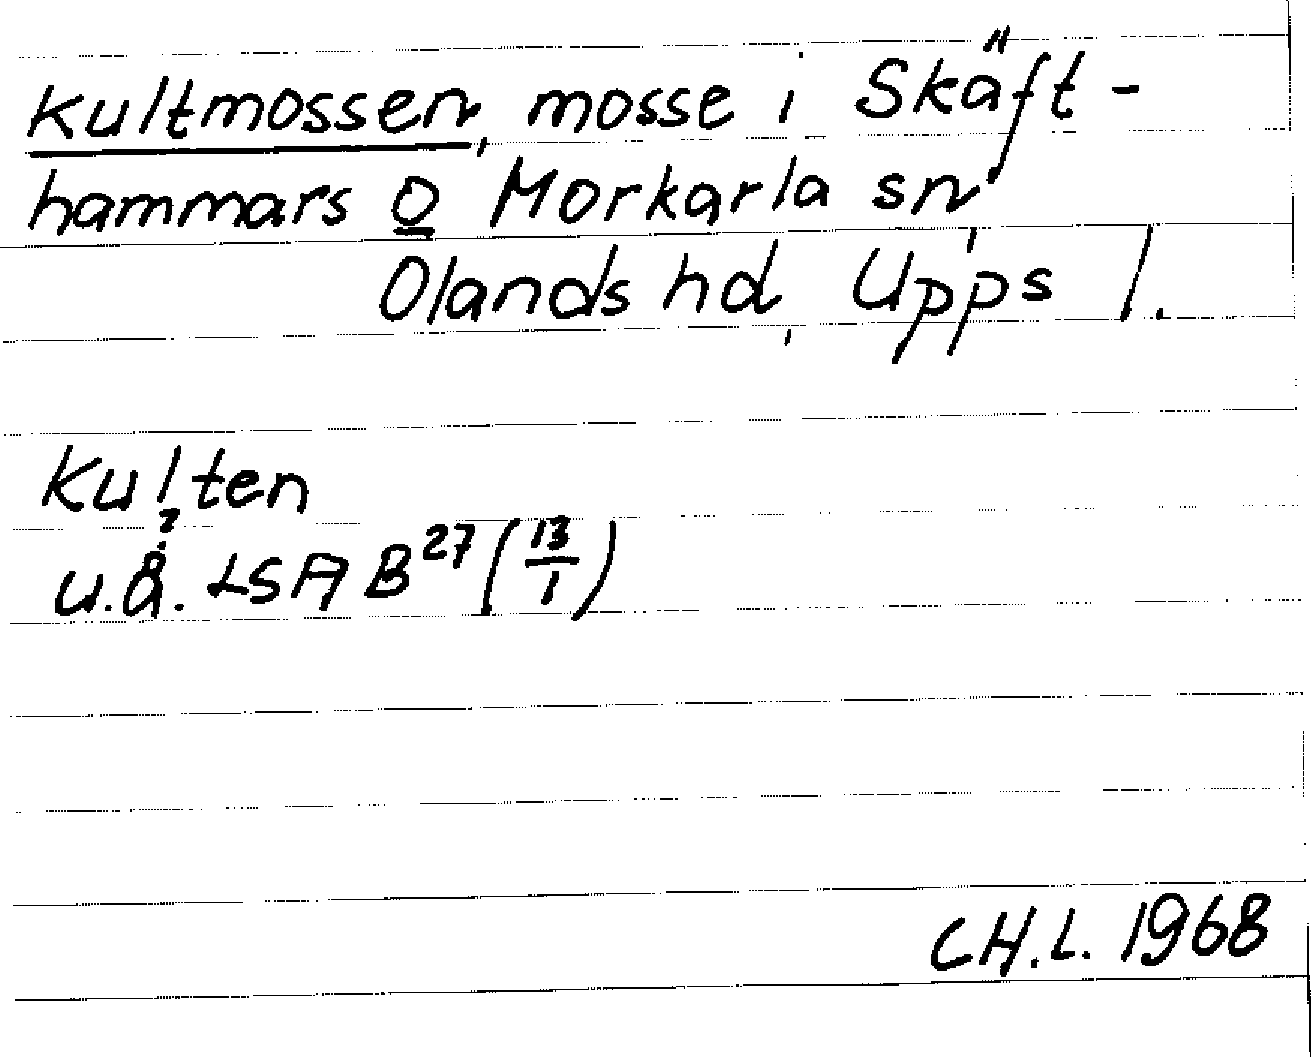 Kultmossen, mosse i Skäft-
hammars o Morkarla sn,
Olands hd, Upps l.
Kulten
u.å. LSA B27 (13/1)
CH.L. 1968